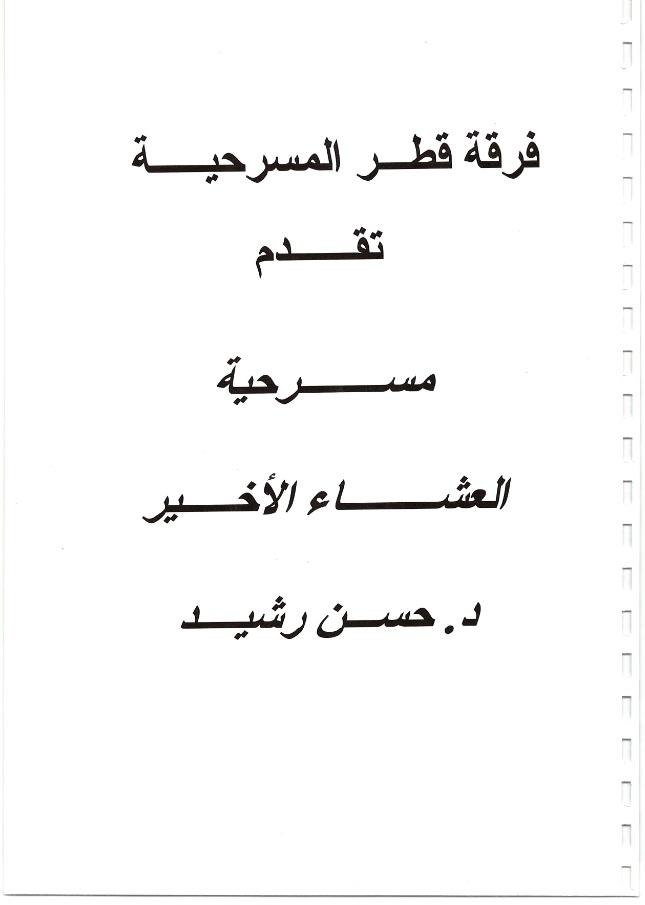 فرقة قطر المسرحية
تقدم
مسرحية
العشاء الأخير
د. حسن رشيد